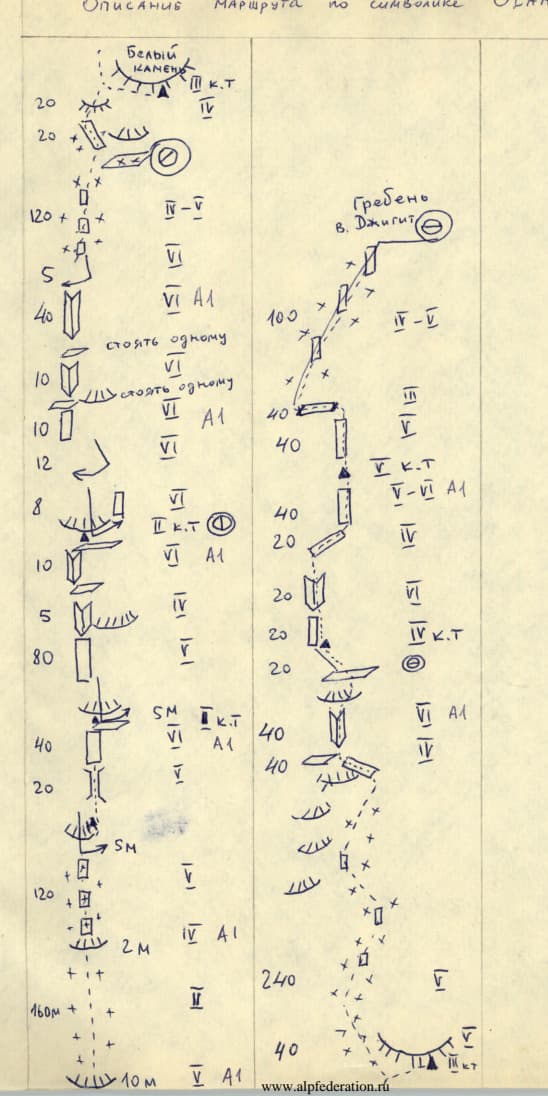 Описание маршрута по символике
Белый
камень
III к.т
20 IV
20
120 IV-V
5 VI
40 VI A1
стоять одному
10 VI
стоять одному
10 VI A1
12 VI
8 VI
II к.т
10 VI A1
5 IV
80 V
5м I к.т
40 VI A1
20 V
5м
120 V
2м IV A1
160м II
10м V A1
Гребень
в. Джигит
100 IV-V
40 III
40 V
V к.т
40 V-VI A1
20 IV
20 VI
20 IV к.т
20
40 VI A1
40 IV
240 V
40 V
III кт
www.alpfederation.ru